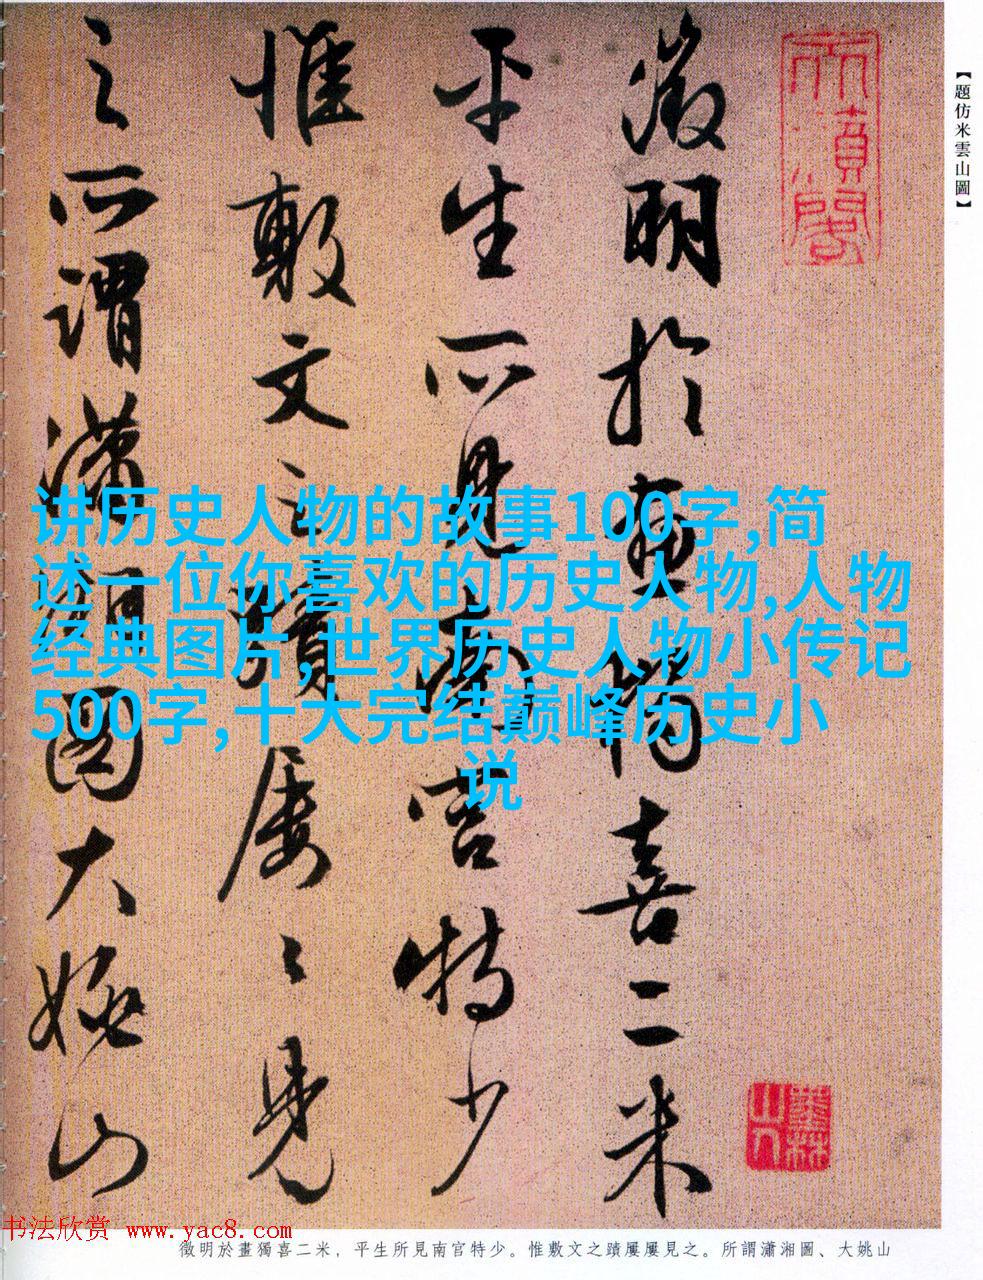 【題仿米雲山圖】
徵明於畫獨喜二米
平生所見南宮特少
惟敷文之蹟屢〻見
之所謂瀟湘圖大姚山
墨林
山人
讲历史人物的故事100字,简
述一位你喜欢的历史人物,人物
经典图片,世界历史人物小传记
500字,十大完结巅峰历史小
说
书法欣赏 www.yac8.com
徵明於畫獨喜二米，平生所見南官特少。惟敷文之蹟屢屢見之。所謂瀟湘圖、大姚山